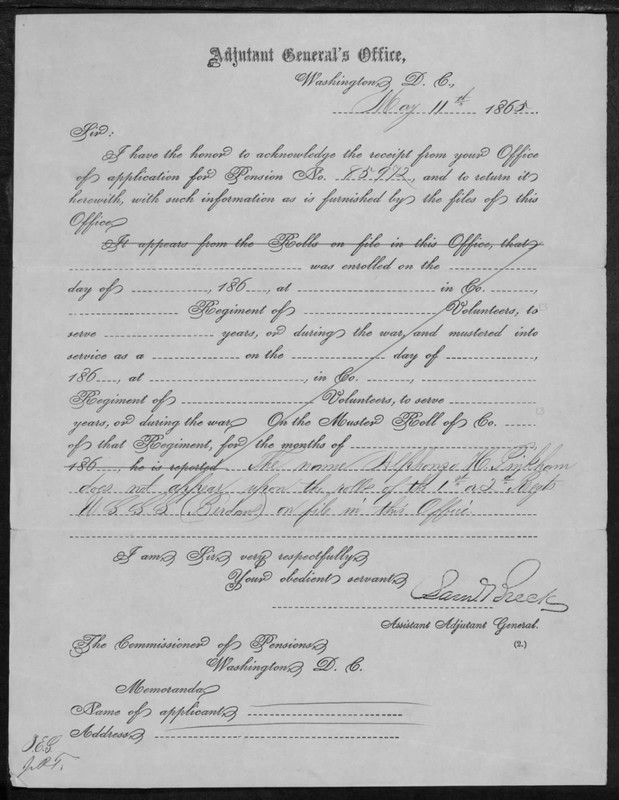 Adjutant General's Office,
Washington, D. C.,
May 11th 1865.
Sir:
I have the honor to acknowledge the receipt from your Office
of application for Pension No. 85,972, and to return it
herewith, with such information as is furnished by the files of this
Office.
It appears from the Rolls on file in this Office, that
was enrolled on the
day of , 186 , at in Co. ,
Regiment of Volunteers, to
serve years, or during the war, and mustered into
service as a on the day of ,
186 , at , in Co. ,
Regiment of Volunteers, to serve
years, or during the war. On the Muster Roll of Co.
of that Regiment, for the months of
186 , he is reported The name Alphonzo H. Pinkham
does not appear upon the rolls of the 1st or 2d Regts
U.S.S.S. (Berdans) on file in this Office.
I am, Sir, very respectfully,
Your obedient servant,
Saml Breck
Assistant Adjutant General.
(2.)
The Commissioner of Pensions,
Washington, D. C.
Memoranda.
Name of applicant,
Address,